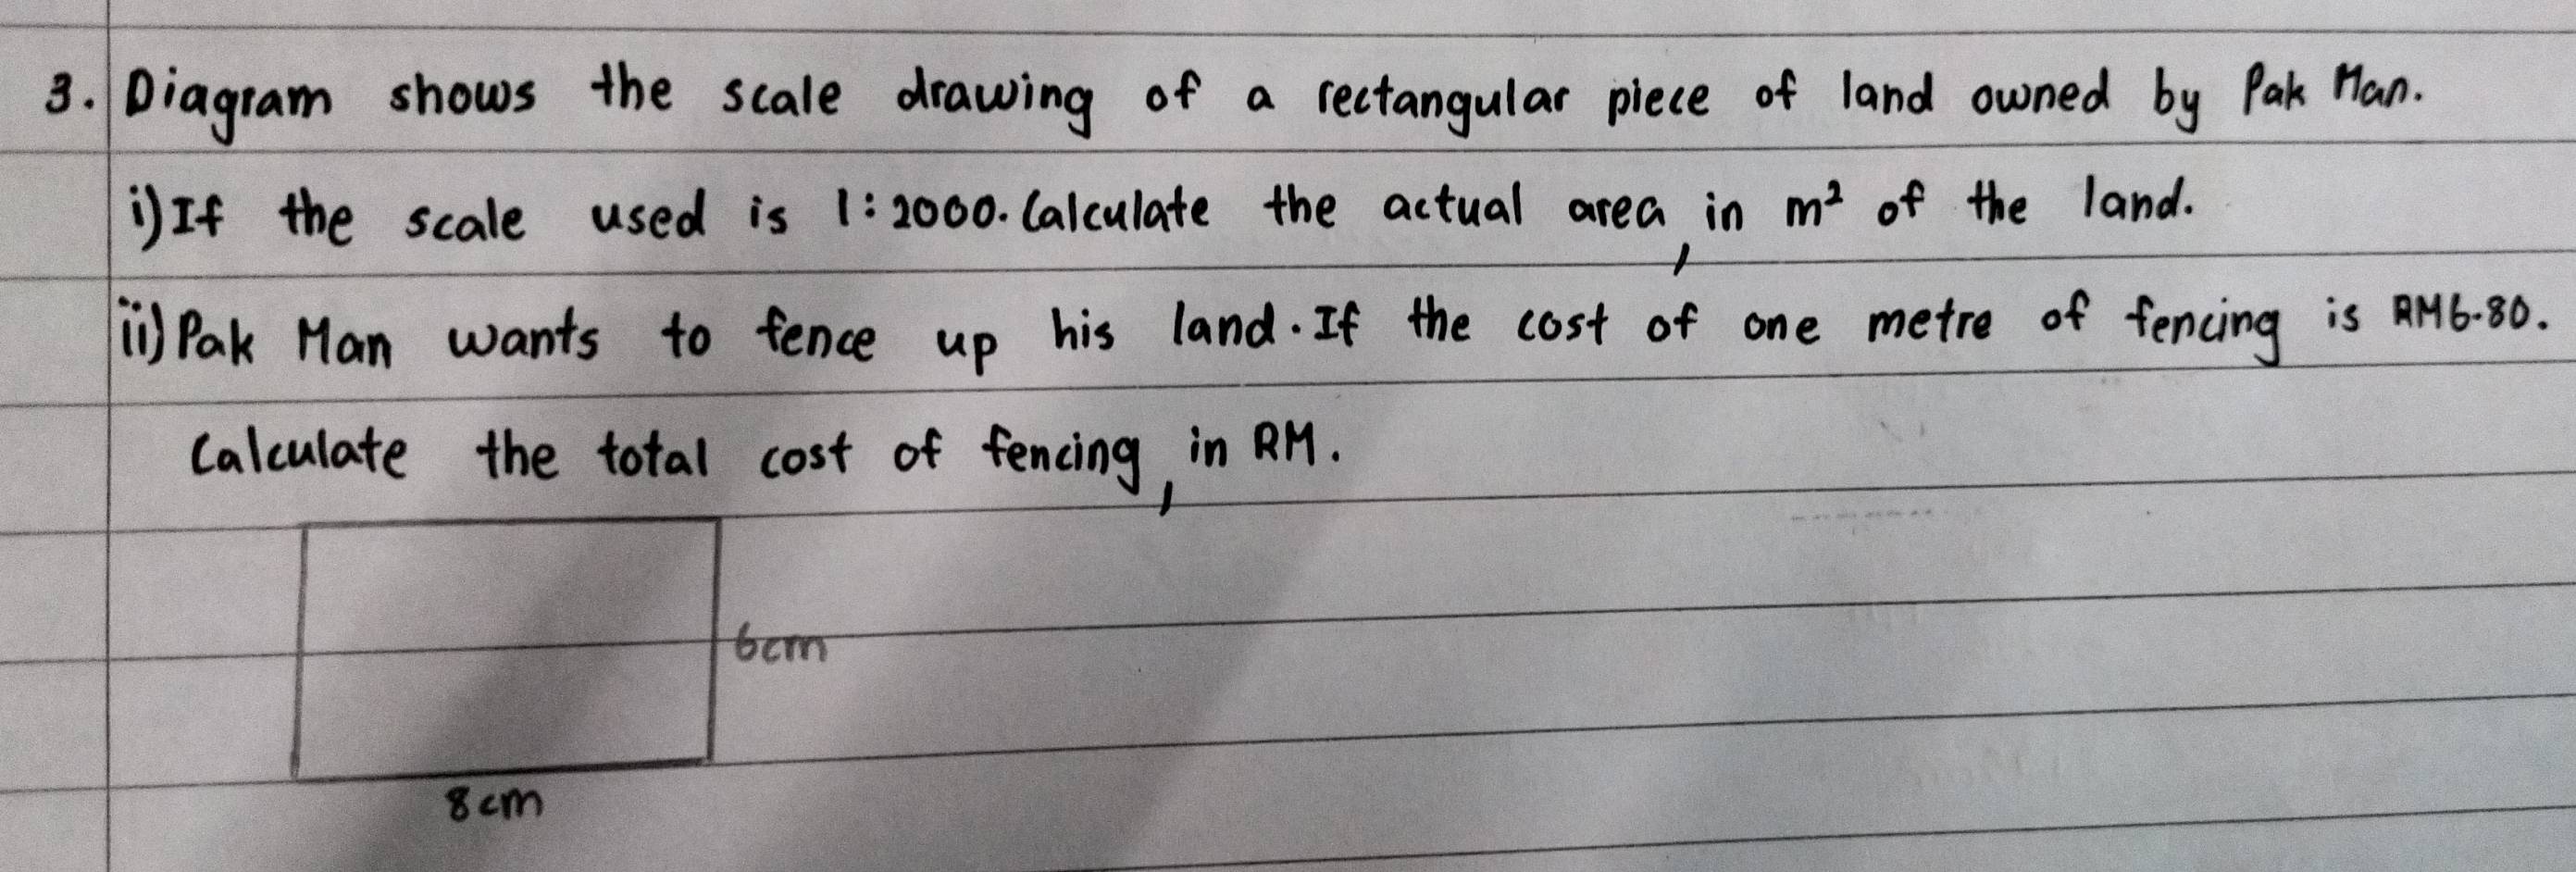 3. Diagram shows the scale drawing of a rectangular piece of land owned by Pak Man.
i) If the scale used is 1:2000. Calculate the actual area, in m² of the land.
ii) Pak Man wants to fence up his land. If the cost of one metre of fencing is RM6.80.
Calculate the total cost of fencing, in RM.
6cm
8cm